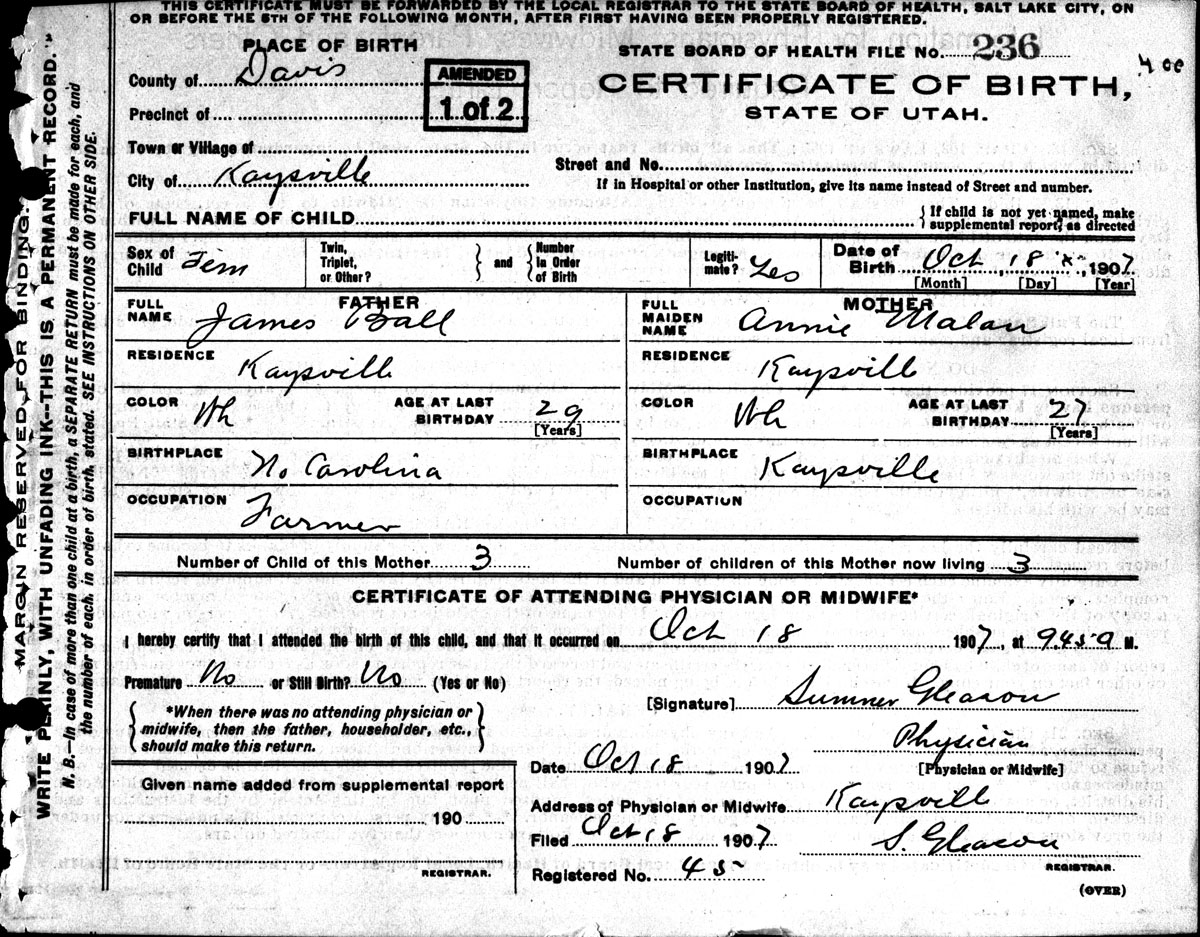 THIS CERTIFICATE MUST BE FORWARDED BY THE LOCAL REGISTRAR TO THE STATE BOARD OF HEALTH, SALT LAKE CITY, ON
OR BEFORE THE 5TH OF THE FOLLOWING MONTH, AFTER FIRST HAVING BEEN PROPERLY REGISTERED.
PLACE OF BIRTH
STATE BOARD OF HEALTH FILE No. 236
County of Davis
AMENDED
1 of 2
CERTIFICATE OF BIRTH,
STATE OF UTAH.
Precinct of
Town or Village of
Street and No.
City of Kaysville
If in Hospital or other Institution, give its name instead of Street and number.
FULL NAME OF CHILD
{ If child is not yet named, make
supplemental report, as directed
Sex of Child Fem
Twin, Triplet, or Other?
} and {
Number in Order of Birth
Legiti-mate? Yes
Date of Birth Oct 18 1907
[Month] [Day] [Year]
FATHER
FULL NAME James Ball
MOTHER
FULL MAIDEN NAME Annie Malan
RESIDENCE Kaysville
RESIDENCE Kaysville
COLOR Wh
AGE AT LAST BIRTHDAY 29
[Years]
COLOR Wh
AGE AT LAST BIRTHDAY 27
[Years]
BIRTHPLACE No Carolina
BIRTHPLACE Kaysville
OCCUPATION Farmer
OCCUPATION
Number of Child of this Mother 3
Number of children of this Mother now living 3
CERTIFICATE OF ATTENDING PHYSICIAN OR MIDWIFE*
I hereby certify that I attended the birth of this child, and that it occurred on Oct 18 1907, at 945 a M.
Premature No or Still Birth? No (Yes or No)
[Signature] Sumner Gleason
{ *When there was no attending physician or
midwife, then the father, householder, etc.,
should make this return. }
Physician
[Physician or Midwife]
Date Oct 18 1907
Given name added from supplemental report
190
REGISTRAR.
Address of Physician or Midwife Kaysville
Filed Oct 18 1907
S. Gleason
REGISTRAR.
Registered No. 45
(OVER)
MARGIN RESERVED FOR BINDING.
WRITE PLAINLY, WITH UNFADING INK--THIS IS A PERMANENT RECORD.
N. B.--In case of more than one child at a birth, a SEPARATE RETURN must be made for each, and
the number of each, in order of birth, stated. SEE INSTRUCTIONS ON OTHER SIDE.